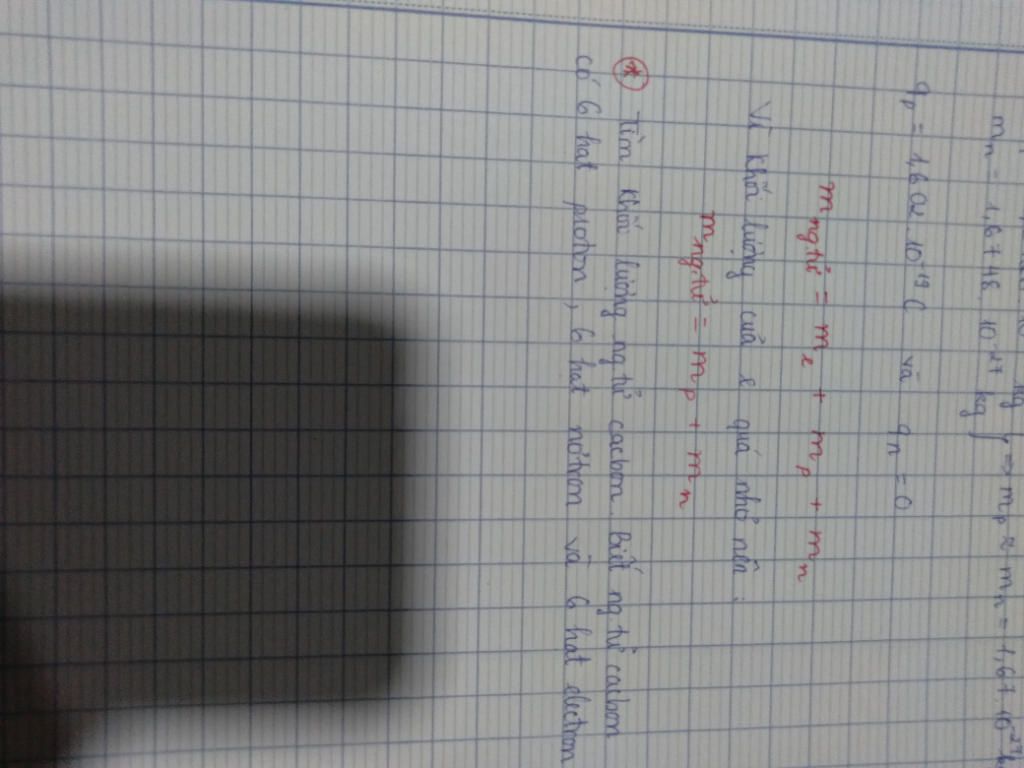 kg
m_n = 1,6748.10^-27 kg } => m_p ≈ m_n = 1,67.10^-27 k
q_p = 1,602.10^-19 C và q_n = 0
m_ng.tử = m_e + m_p + m_n
Vì khối lượng của e quá nhỏ nên:
m_ng.tử = m_p + m_n
* Tìm khối lượng ng.tử cacbon. Biết ng.tử cacbon
có 6 hạt proton, 6 hạt nơtron và 6 hạt electron